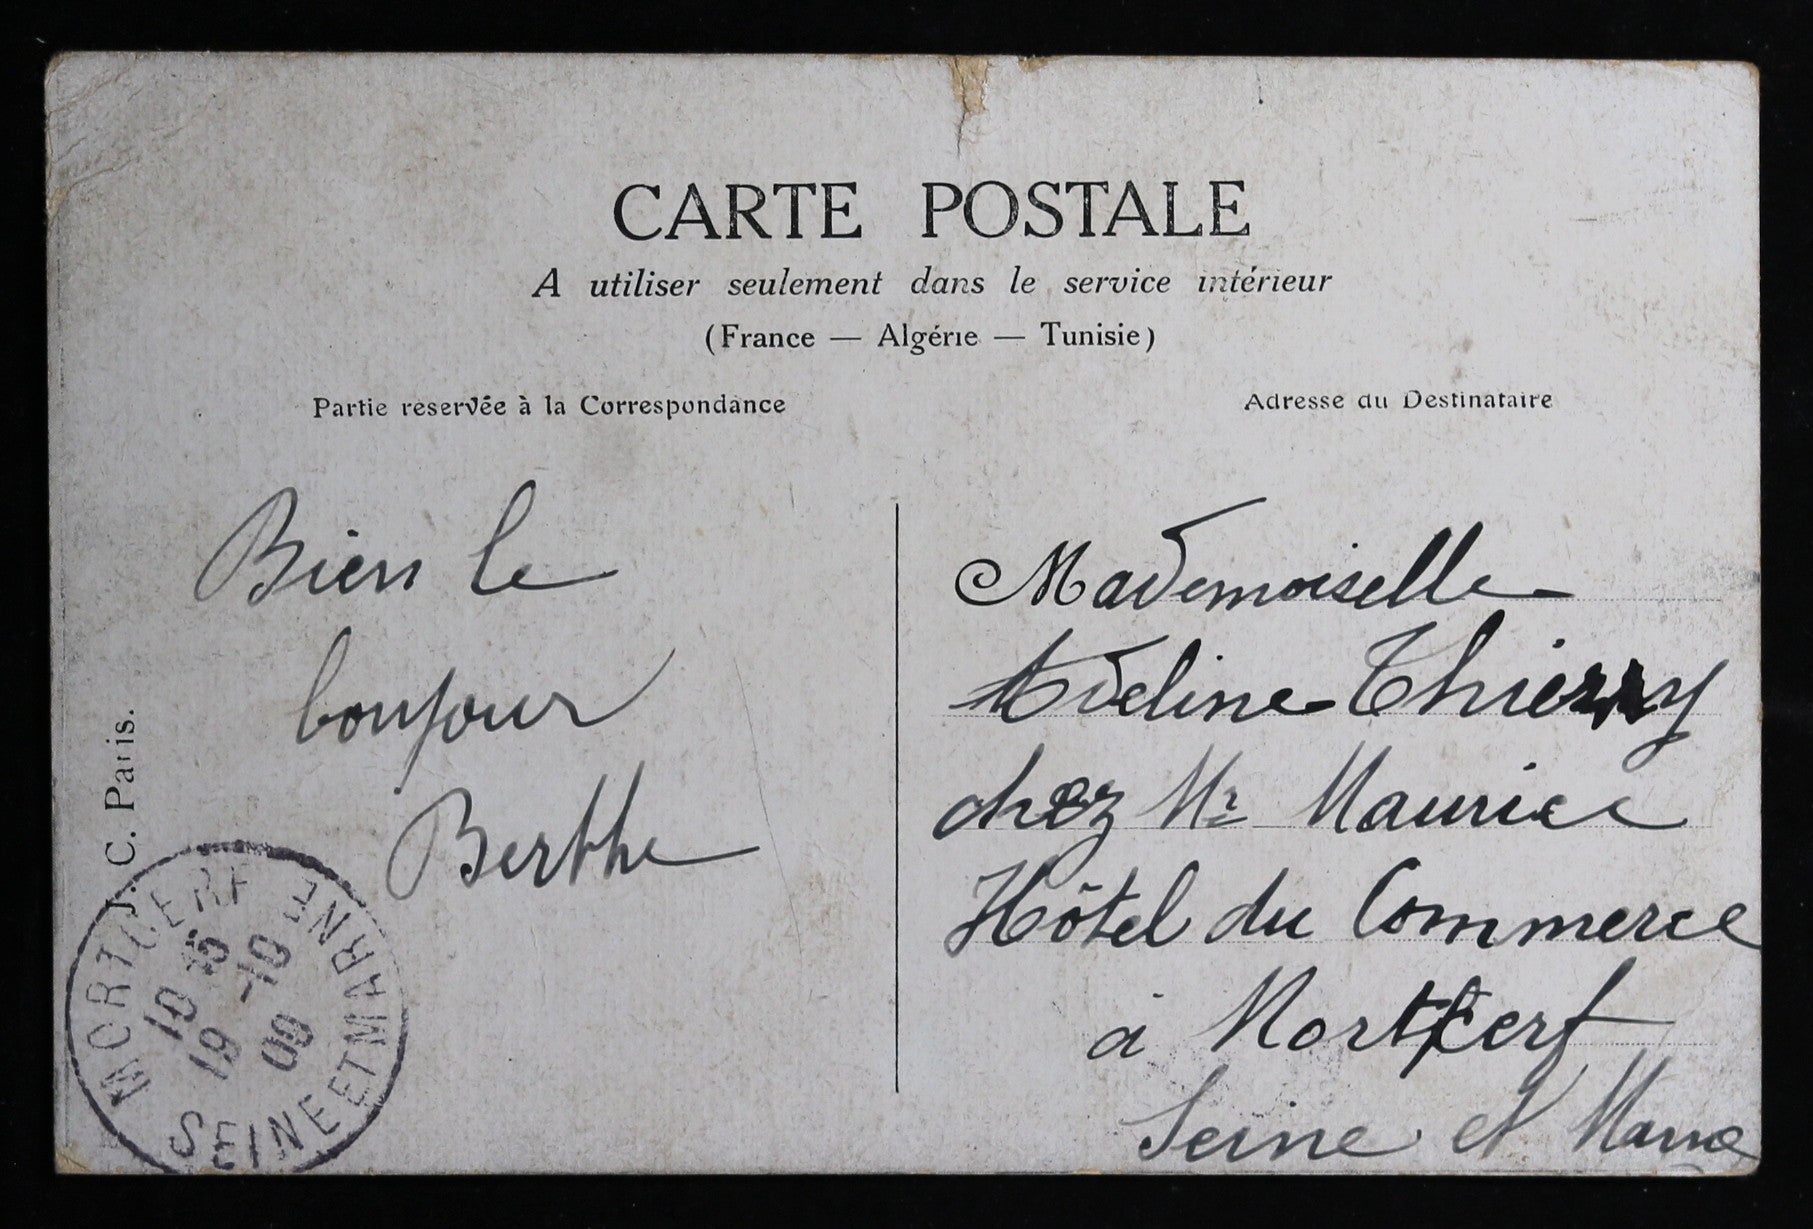 CARTE POSTALE
A utiliser seulement dans le service intérieur
(France — Algérie — Tunisie)
Partie reservée à la Correspondance
Adresse du Destinataire
Bien le
bonjour
Berthe
J. C. Paris.
MORTCERF
SEINE ET MARNE
10 15
19 -10
09
Mademoiselle
Adeline Thierry
chez Mr Maurice
Hôtel du Commerce
à Mortcerf
Seine et Marne